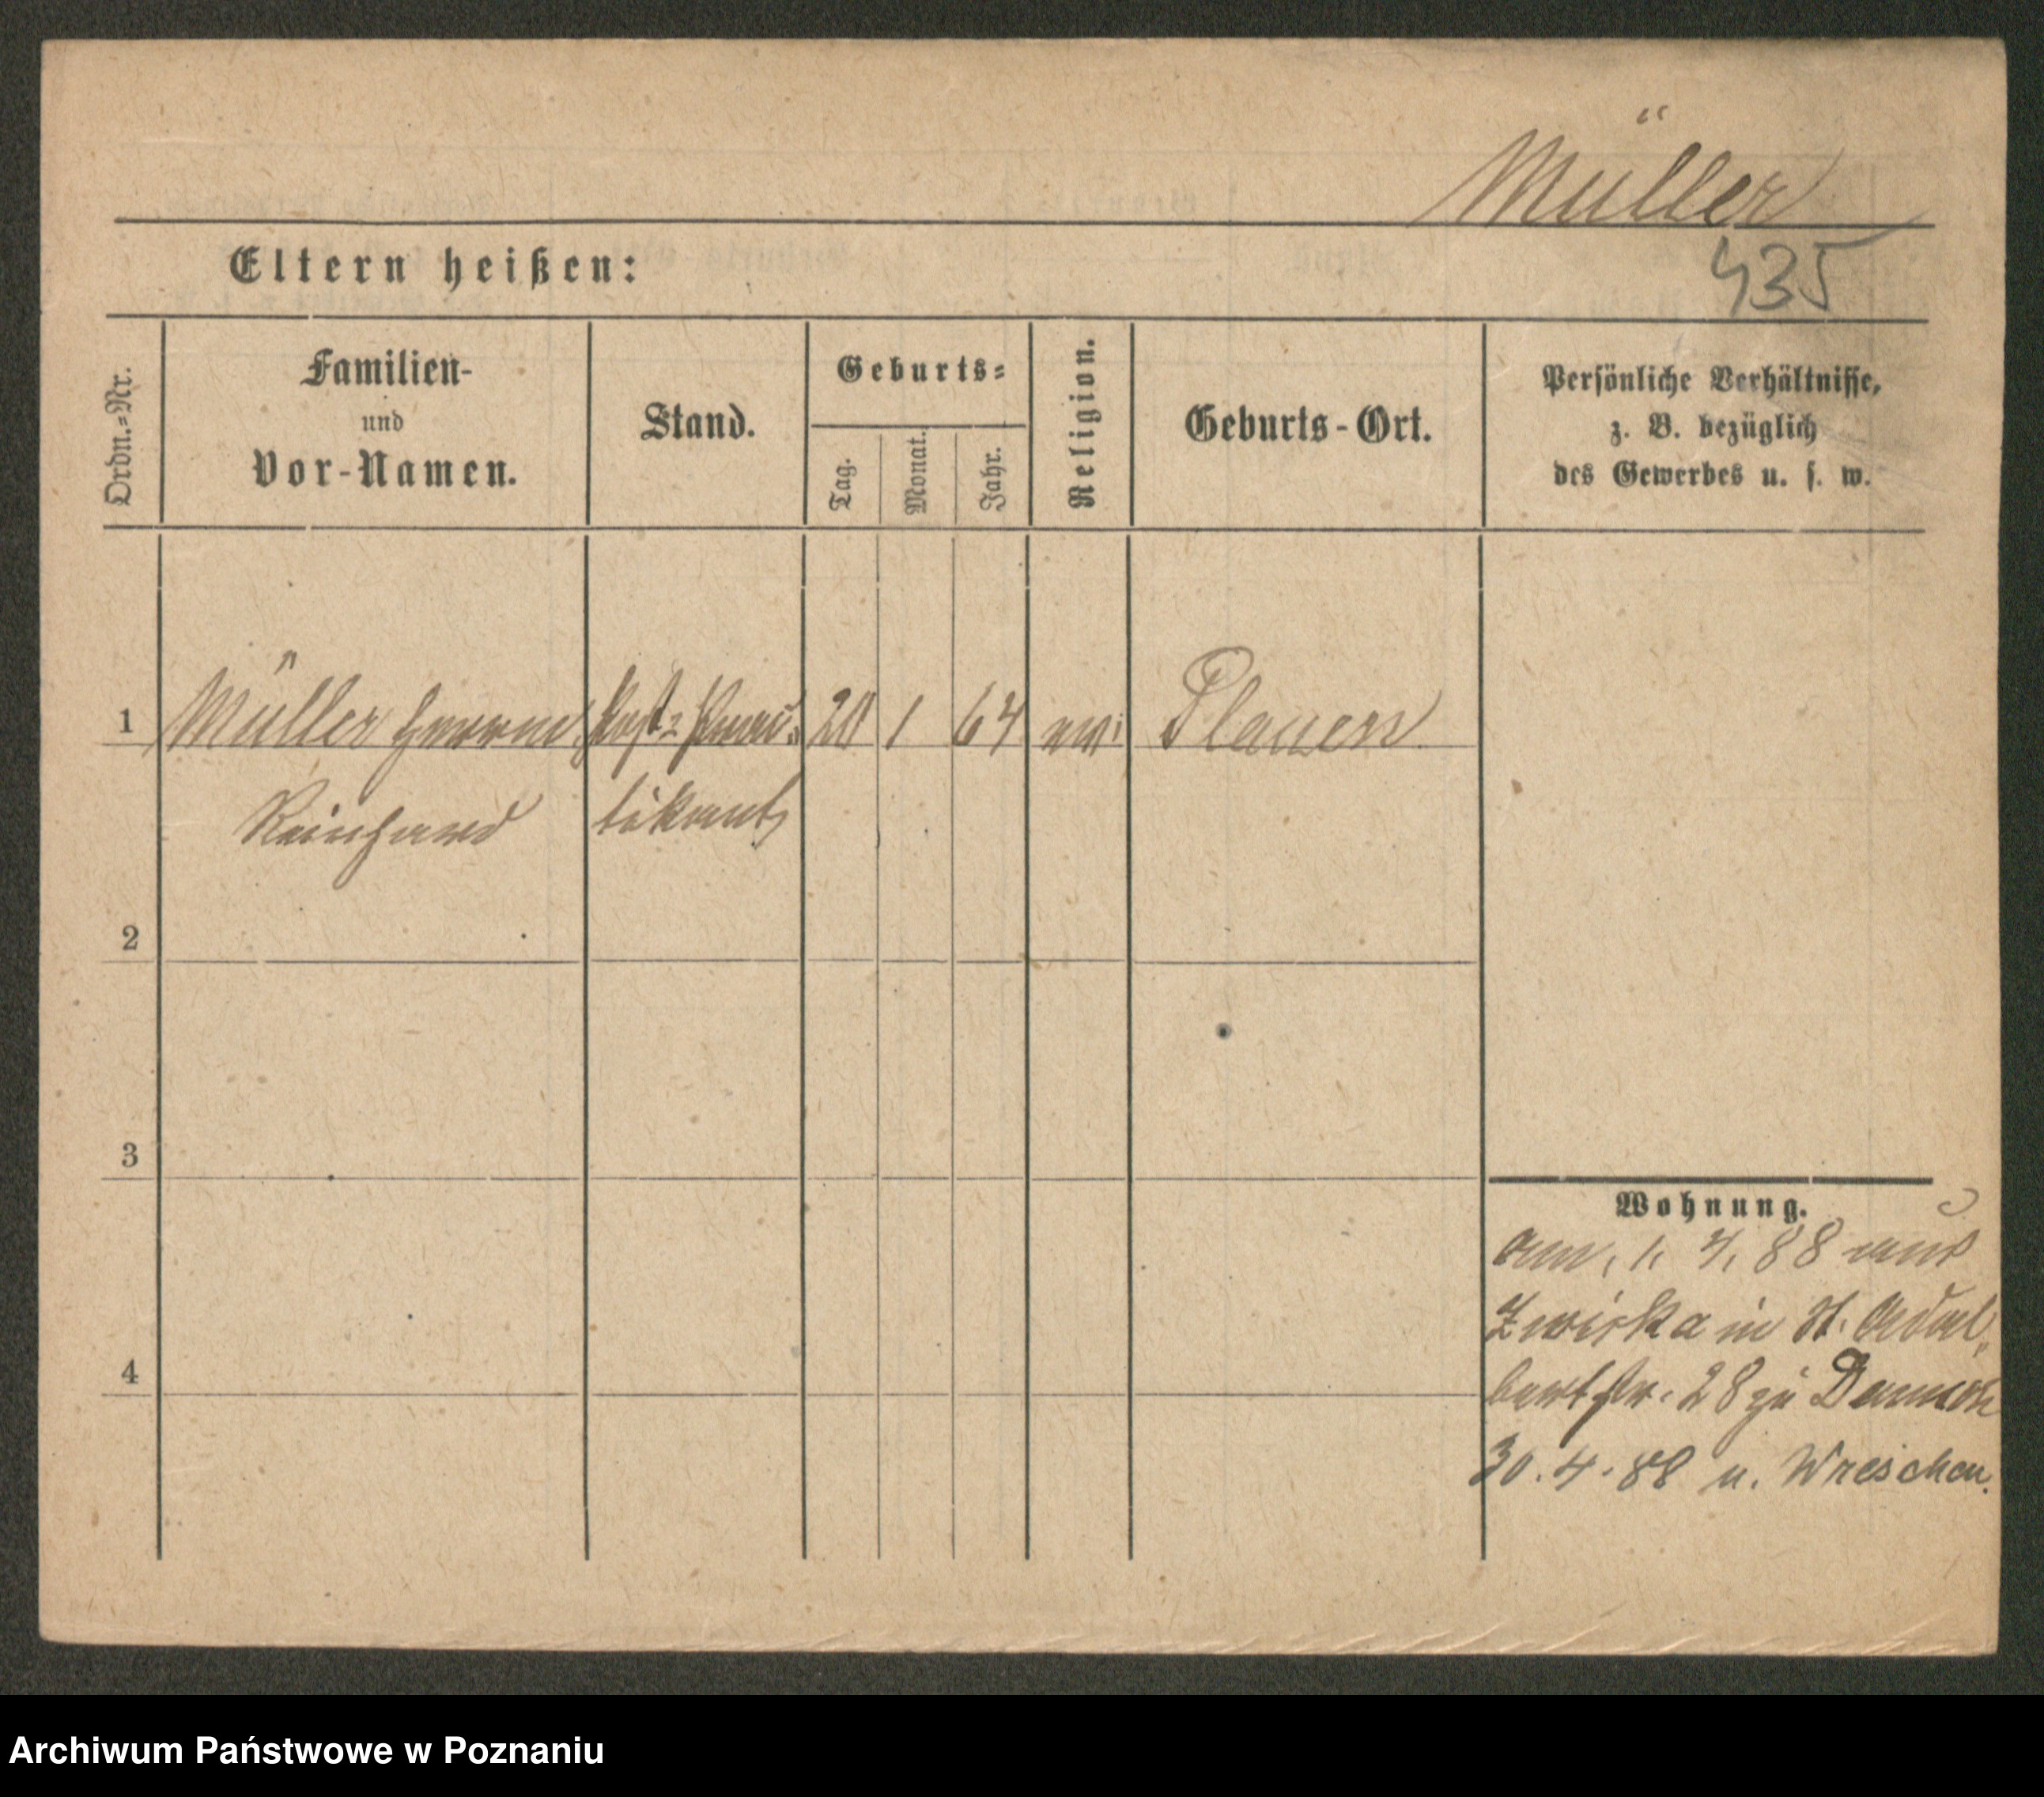 Müller
Eltern heißen:
435
Ordn.=Nr.
Familien-
und
Vor-Namen.
Stand.
Geburts=
Tag.
Monat.
Jahr.
Religion.
Geburts-Ort.
Persönliche Verhältnisse,
z. B. bezüglich
des Gewerbes u. s. w.
1
Müller Herrm. 20 1 64 Plauen
Reinhard tikant
2
3
4
Wohnung.
1. 4. 88 aus
in St. Adal
bertstr. 28 zu
30. 4. 88 n. Wreschen.
Archiwum Państwowe w Poznaniu